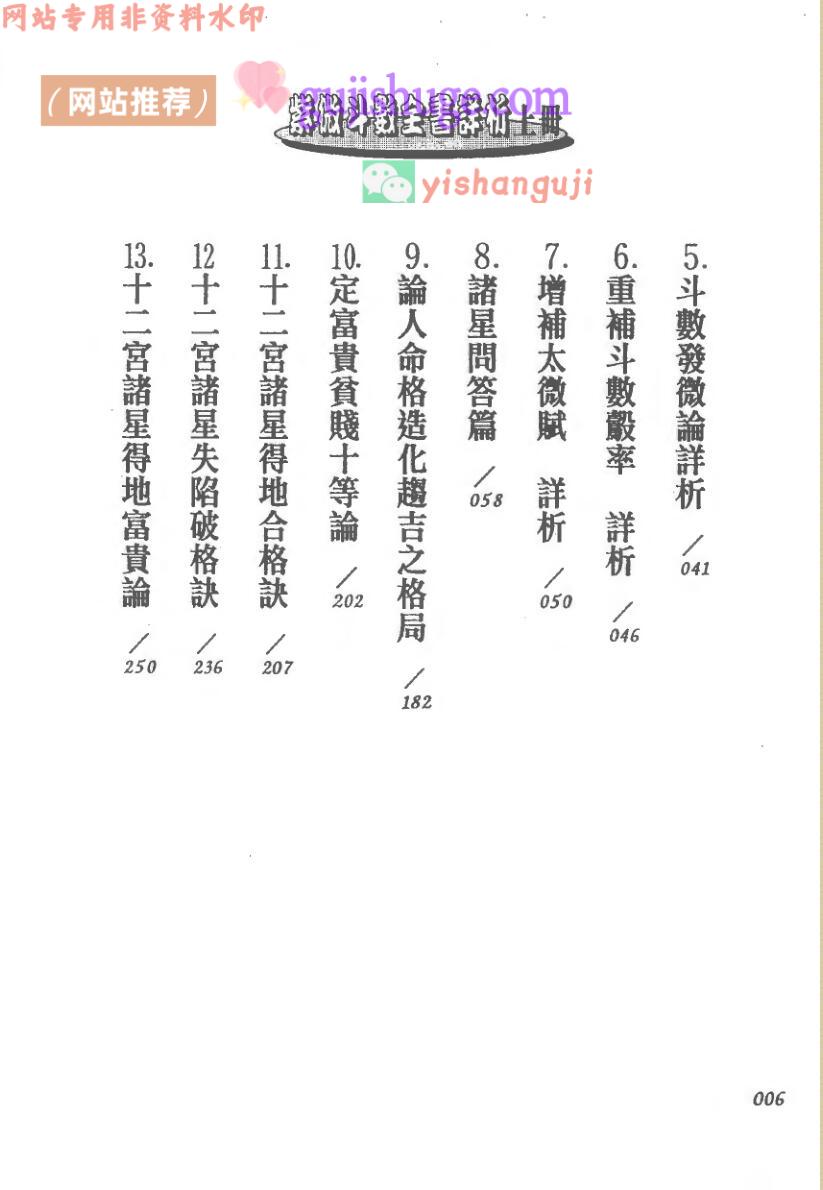 网站专用非资料水印
（网站推荐）
gujishuge.com
紫微斗數全書詳析上冊
yishanguji
5.斗數發微論詳析 ／041
6.重補斗數彀率 詳析 ／046
7.增補太微賦 詳析 ／050
8.諸星問答篇 ／058
9.論人命格造化趨吉之格局 ／182
10.定富貴貧賤十等論 ／202
11.十二宮諸星得地合格訣 ／207
12十二宮諸星失陷破格訣 ／236
13.十二宮諸星得地富貴論 ／250
006